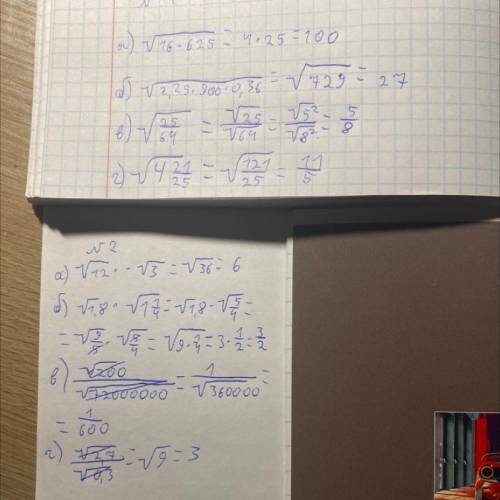 а) √16·625 = 4·25 = 100
б) √2,25·900·0,36 = √729 = 27
в) √25/64 = √25/√64 = √5²/√8² = 5/8
г) √4 21/25 = √121/25 = 11/5
№2
а) √12 · √3 = √36 = 6
б) √1,8 · √1 1/4 = √1,8 · √5/4 =
= √9/5 · √5/4 = √9·1/4 = 3·1/2 = 3/2
в) √200/√72000000 = 1/√360000 =
= 1/600
г) √2,7/√0,3 = √9 = 3